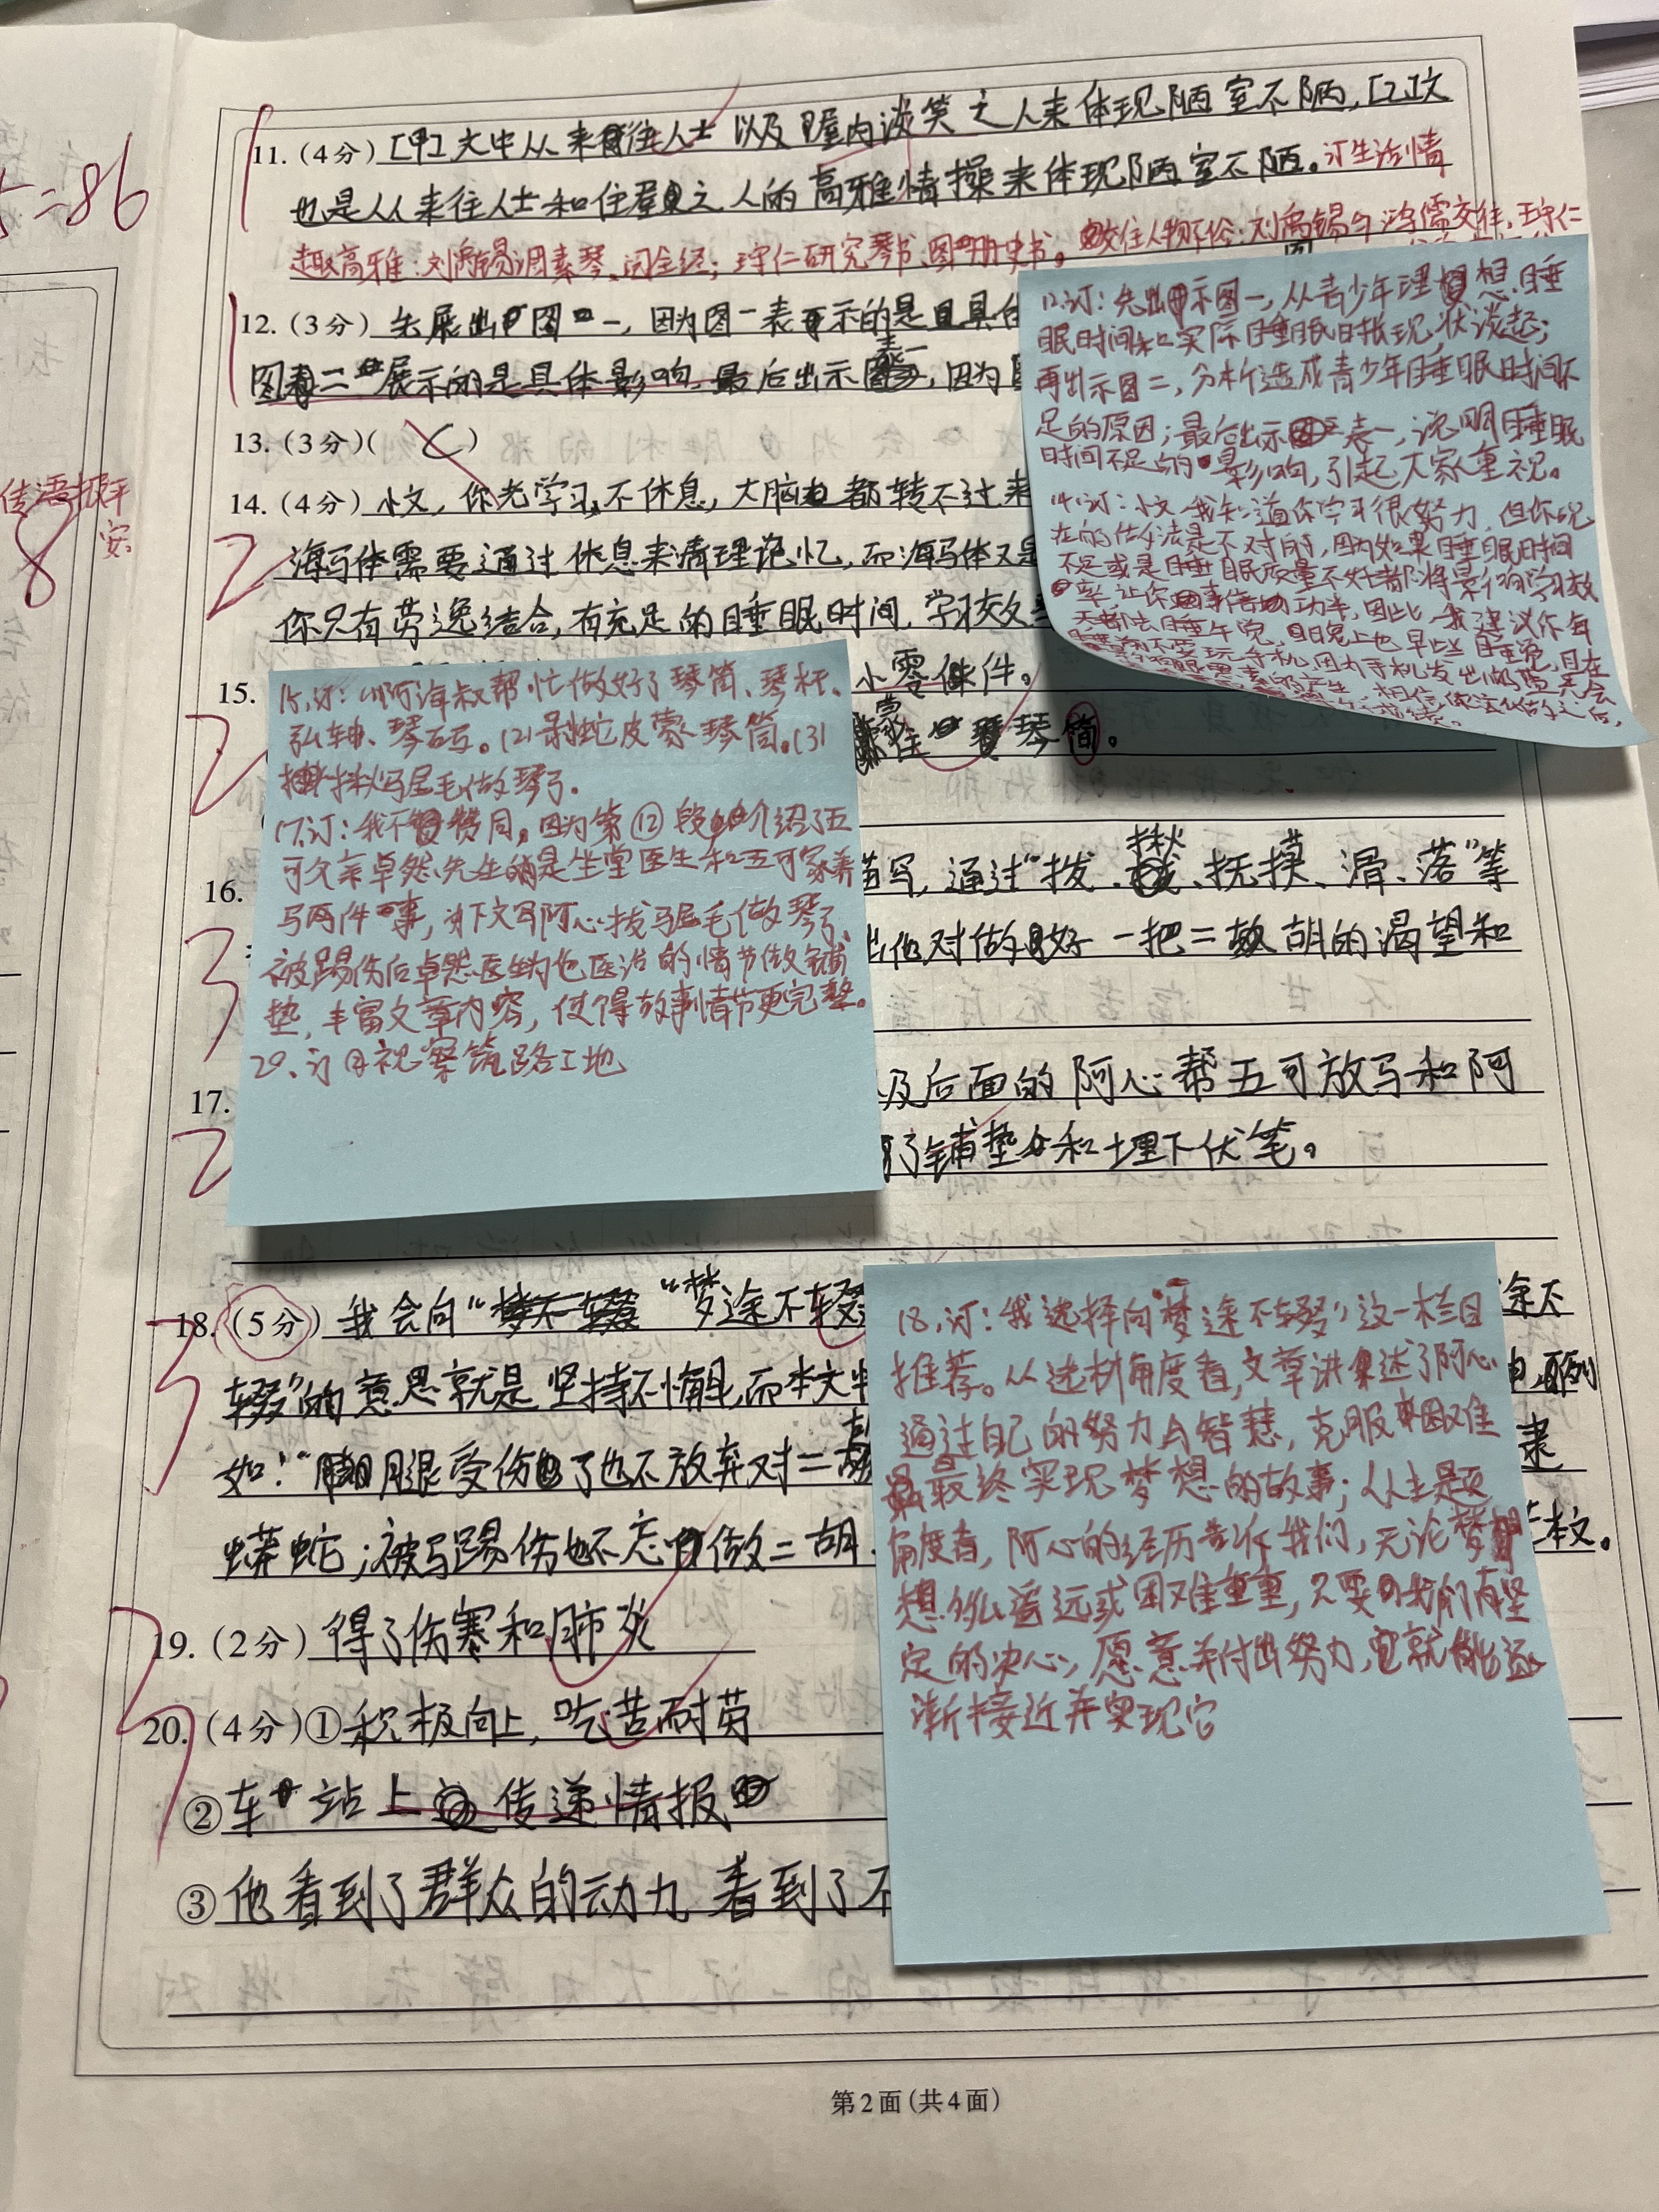 =86
传语报平
安
8
11.(4分)[甲]文中从来往人士以及屋内谈笑之人来体现陋室不陋,[乙]文
也是从来往人士和住之人的高雅情操来体现陋室不陋。订生活情
趣高雅:刘禹锡调素琴、阅金经;王守仁研究琴书、图册史书。交往人物不俗:刘禹锡与鸿儒交往,王守仁
1
12.(3分)先展出图一,因为图一表示的是具体
图二展示的是具体影响,最后出示表一,因为
1
13.(3分)( C )
14.(4分)小文,你光学习,不休息,大脑都转不过来
海马体需要通过休息来清理记忆,而海马体又是
你只有劳逸结合,有充足的睡眠时间,学习效
2
12.订:先出示图一,从青少年理想睡
眠时间和实际睡眠时长现状谈起;
再出示图二,分析造成青少年睡眠时间不
足的原因;最后出示表一,说明睡眠
时间不足的影响,引起大家重视。
14.订:小文,我知道你学习很努力,但你现
在的做法是不对的,因为如果睡眠时间
不足或是睡眠质量不好都将影响学习效
率,让你事倍功半,因此,我建议你每
天都去睡午觉,晚上也早些睡觉,且在
睡前不要玩手机,因为手机发出的蓝光会
15.
小零件。
蒙住琴筒。
2
15.订:(1)阿海叔帮忙做好了琴筒、琴杆、
弘轴、琴码。(2)剥蛇皮蒙琴筒。(3)
揪马尾毛做琴弓。
17.订:我不赞同。因为第⑫段介绍了五
可父亲卓然先生是坐堂医生和五可家养
马两件事,为下文写阿心拔马尾毛做琴弓、
被踢伤后卓然医生为他医治的情节做铺
垫,丰富文章内容,使得故事情节更完整。
20.订②视察筑路工地
16.
描写,通过“拨、揪、抚摸、滑、落”等
出他对做好一把二胡的渴望和
3
17.
及后面的阿心帮五可放马和阿
了铺垫和埋下伏笔。
2
18.(5分)我会向“梦途不辍
途不
辍”的意思就是坚持不懈,而本文
例
如:“腿受伤了也不放弃对二
隶
蟒蛇;被马踢伤也不忘做二胡
本文。
3
18.订:我选择向“梦途不辍”这一栏目
推荐。从选材角度看,文章讲述了阿心
通过自己的努力与智慧,克服困难
最终实现梦想的故事;从主题
角度看,阿心的经历告诉我们,无论梦
想多么遥远或困难重重,只要我们有坚
定的决心,愿意并付出努力,就能逐
渐接近并实现它
19.(2分)得了伤寒和肺炎
20.(4分)①积极向上,吃苦耐劳
②车站上传递情报
③他看到了群众的动力,看到了不
3
第2面(共4面)